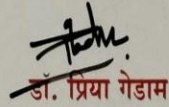 डॉ. प्रिया गेडाम